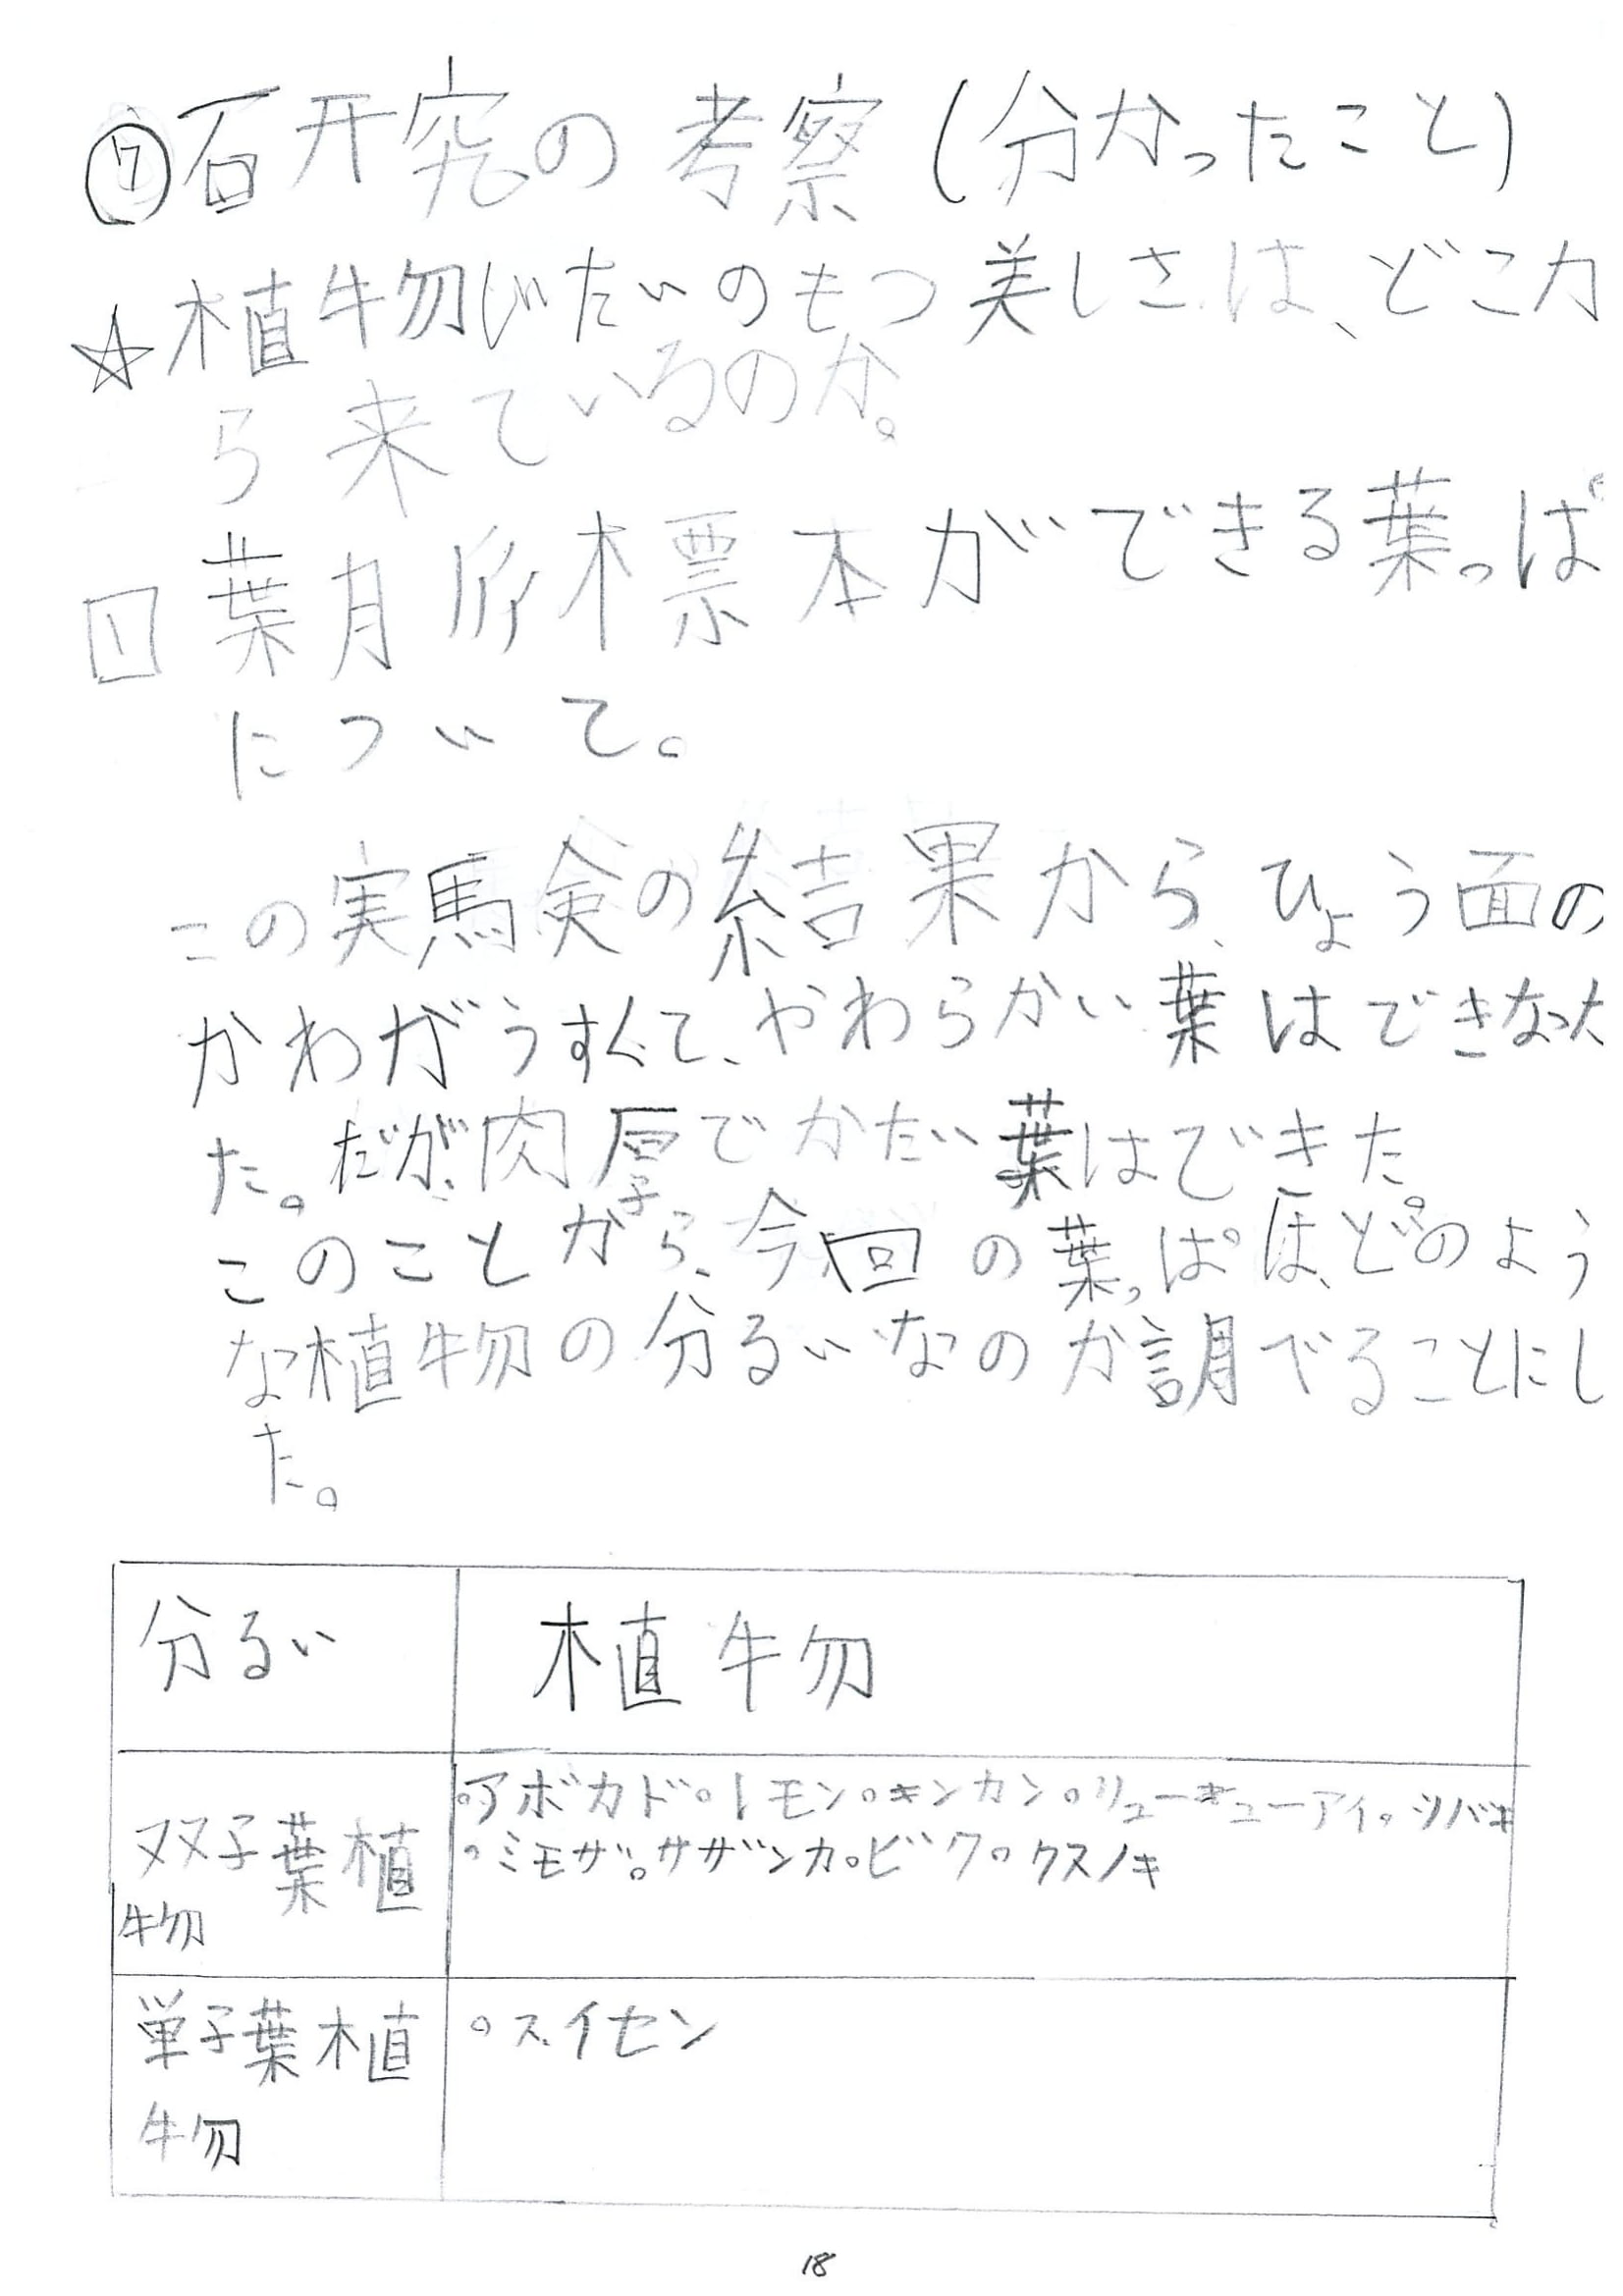 ⑦研究の考察(分かったこと)
☆植物じたいのもつ美しさは、どこか
ら来ているのか。
1 葉脈標本ができる葉っぱ
について。
この実験の結果から、ひょう面の
かわがうすくて、やわらかい葉はできなかっ
た。だが、肉厚でかたい葉はできた。
このことから、今回の葉っぱは、どのよう
な植物の分るいなのか調べることにし
た。
分るい 植物
双子葉植
物
。アボカド。レモン。キンカン。リューキューアイ。ツバキ
。ミモザ。サザンカ。ビワ。クスノキ
単子葉植
物
。スイセン
18